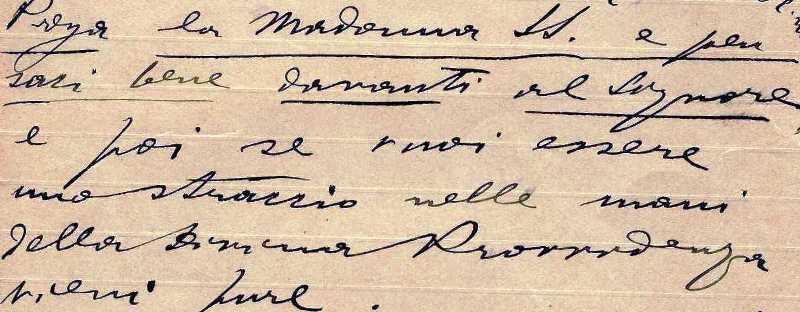 Prega la Madonna SS. e pen
saci bene davanti al Signore
e poi se vuoi essere
uno straccio nelle mani
della Divina Provvidenza
vieni pure.